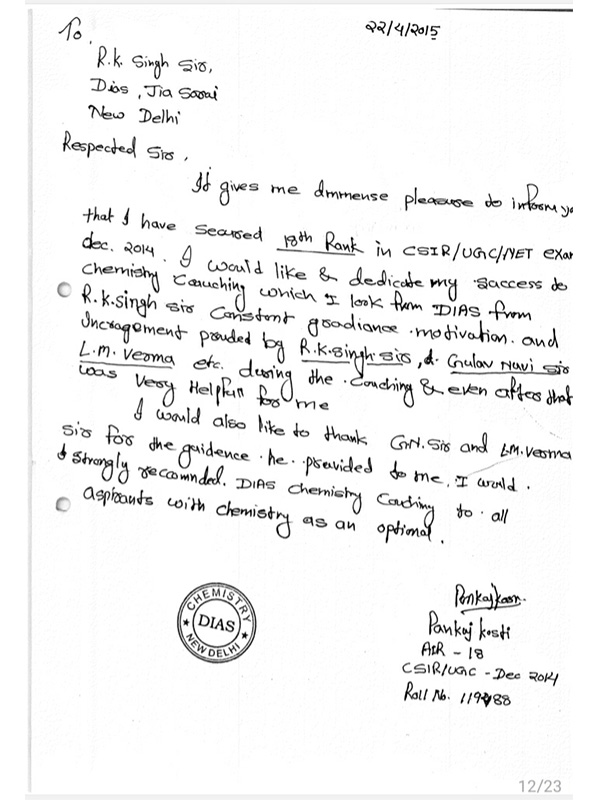 To,
22/4/2015
R.K. Singh Sir,
Dias, Jia Sarai
New Delhi
Respected Sir,
It gives me immense pleasure to inform yo
that I have secured 18th Rank in CSIR/UGC/NET exam
dec. 2014. I would like & dedicate my success to
chemistry Cauching which I took from DIAS from
R.K.singh sir Constant goadiance motivation. and
Incragement pouded by R.K.singh sir, & Gulav Navi sir
L.M. Verma etc. during the Couching & even after that
was very Helpfun for me
I would also like to thank G.N. Sir and L.M. Verma
sir for the guidence he provided to me, I would.
& strongly recomnded. DIAS chemistry Couching to all
aspirants with chemistry as an optional.
CHEMISTRY
DIAS
NEW DELHI
Pankaj kosti
AIR - 18
CSIR/UGC - Dec 2014
Roll No.
12/23